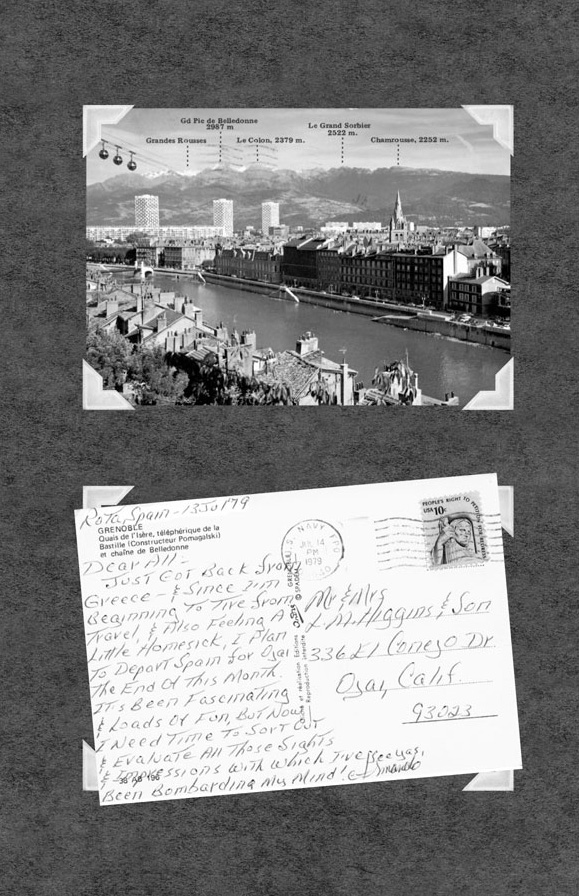 Gd Pic de Belledonne
2987 m
Le Grand Sorbier
2522 m.
Grandes Rousses
Le Colon, 2379 m.
Chamrousse, 2252 m.
Rota, Spain - 13 Jul 79
GRENOBLE
Quais de l'Isère, téléphérique de la
Bastille (Constructeur Pomagalski)
et chaîne de Belledonne
Dear All -
Just Got Back From
Greece - & Since I'm
Beginning To Tire From
Travel, & Also Feeling A
Little Homesick, I Plan
To Depart Spain For Ojai
The End Of This Month.
It's Been Fascinating
& Loads Of Fun, But Now
I Need Time To Sort Out
& Evaluate All Those Sights
& Impressions With Which I've
Been Bombarding My Mind!
U.S. NAVY
JUL 14
PM
1979
PEOPLE'S RIGHT TO PETITION
USA 10c
Mr & Mrs
L.M. Higgins & Son
336 El Conejo Dr.
Ojai, Calif.
93023
© SPADEM
Editions
et réalisation
Reproduction interdite